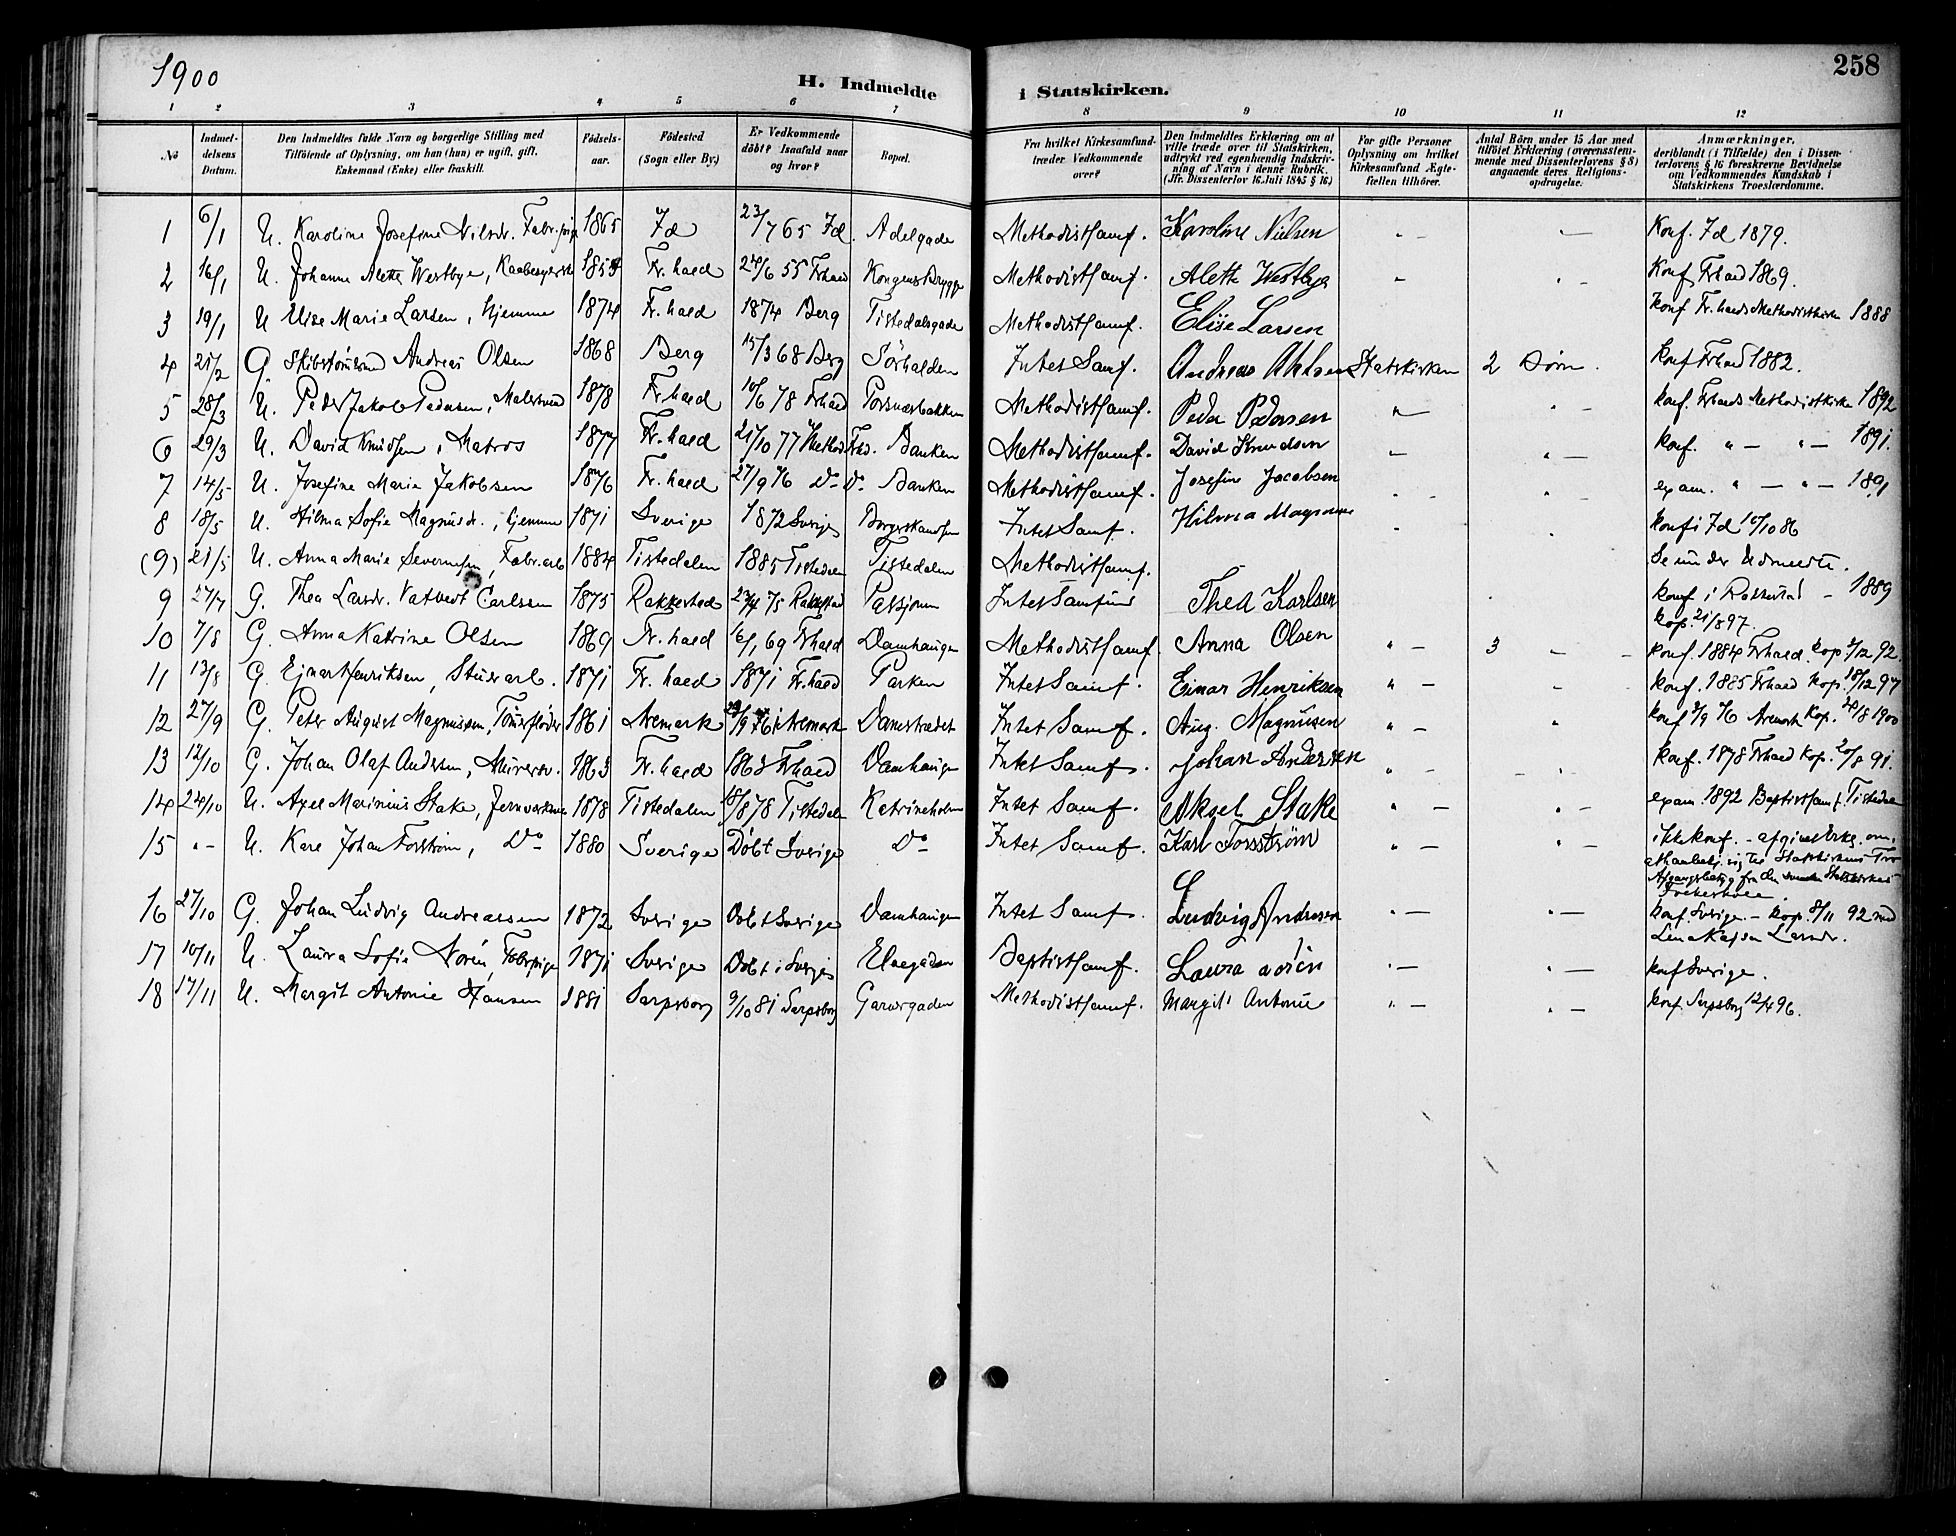 1900
258
H. Indmeldte i Statskirken.
1 2 3 4 5 6 7 8 9 10 11 12
No
Indmel-
delsens
Datum.
Den Indmeldtes fulde Navn og borgerlige Stilling med
Tilföiende af Oplysning, om han (hun) er ugift, gift,
Enkemand (Enke) eller fraskilt.
Födsels-
aar.
Födested
(Sogn eller By)
Er Vedkommende
döbt? Isaafald naar
og hvor?
Bopæl.
Fra hvilket Kirkesamfund
træder Vedkommende
over?
Den Indmeldtes Erklæring om at
ville træde over til Statskirken,
udtrykt ved egenhændig Indskriv-
ning af Navn i denne Rubrik.
(Jfr. Dissenterlov 16. Juli 1845 § 16)
For gifte Personer
Oplysning om hvilket
Kirkesamfund Ægte-
fællen tilhörer.
Antal Börn under 15 Aar med
tilföiet Erklæring (overensstem-
mende med Dissenterlovens § 8)
angaaende deres Religions-
opdragelse.
Anmærkninger,
deriblandt (i Tilfælde) den i Dissen-
terlovens § 16 foreskrevne Bevidnelse
om Vedkommendes Kundskab i
Statskirkens Troeslærdomme.
1 6/1 U. Karoline Josefine Nilsdr. Fabr.pige 1865 Id 23/7 65 Id. Adelgade Methodistsamf. Karoline Nielsen " - - Konf. Id 1879.
2 16/1 U. Johanne Alette Westbye, 1854 Fr.hald 24/6 55 Frhald Kongens Brygge Methodistsamf. Alette Westbye - " - Konf Frhald 1869.
3 19/1 U Elise Marie Larsen, hjemme 1874 Fr.hald 1874 Berg Tistedalsgade Methodistsamf. Elise Larsen Konf Fr.halds Methodistkirke 1888
4 21/2 G Skibstömmermd Andreas Olsen 1868 Berg 15/3 68 Berg Sörhalden Intet Samf. Andreas Statskirken 2 Börn. Konf Frhald 1882.
5 28/3 U. Peder Jakob Pedersen, Malersvend 1878 Fr.hald 10/6 78 Frhald Methodistsamf. Peder Pedersen " - " - konf. Frhalds Methodistkirke 1892
6 29/3 U. David Knudsen, Matros 1877 Fr.hald 21/10 77 Method Frhd. Banken Methodistsamf. David Knudsen " - " - konf. " - " - 1891.
7 14/5 U. Josefine Marie Jakobsen 1876 Fr.hald 27/9 76 Do Do Banken Methodistsamf. Josefin Jacobsen " - " - exam. " - " - 1891
8 18/5 U. Hilma Sofie Magnusdr., hjemme 1871 Sverige 1872 Sverige Intet Samf. Hilma " " konf i Id 86
(9) 21/5 U. Anna Marie Severinsen, Fabr.arb 1884 Tistedalen 1885 Tistedalen Tistedalen Methodistsamf. Se under Udmeldte.
9 27/7 G. Thea Larsdr. Natvedt Carlsen 1875 Rakkestad 23/4 75 Rakkestad Intet Samfund Thea Karlsen " konf i Rakkestad - 1889
kop. 21/8 97.
10 7/8 G. Anna Katrine Olsen 1869 Fr.hald 16/1 69 Frhald Damhaugen Methodistsamf. Anna Olsen " - 3 - - konf. 1884 Frhald. kop 3/12 92.
11 13/8 G. Ejnar Henriksen, Stuerarb. 1871 Fr.hald 1871 Fr.hald Parken Intet Samf. Einar Henriksen " - - konf. 1885 Frhald kop. 18/12 97
12 27/9 G. Peter August Magnussen, Tömmerfløder 1861 Aremark Aremark Damstrædet Intet Samf. Aug. Magnusen " - " konf 3/9 76 Aremark Kop. 24/8 1900
13 12/10 G. Johan Olaf Andersen, Murersv. 1863 Fr.hald 1863 Frhald Damhaugen Intet Samf. Johan Andersen " - - " - konf. 1878 Frhald kop. 20/8 91.
14 24/10 U. Axel Marinius Stake, Jernværksarb 1878 Tistedalen 18/8 78 Tistedalen Katrineholm Intet Samf. Aksel Stake " - " - exam. 1892 Baptistsamf. Tistedalen
15 " - U. Karl Johan Forström, Do 1880 Sverige Döbt Sverige Do Intet Samf. Karl Forsström " - " - ikke konf. - afgivet Erkl. om,
at han bekj. sig til Statskirkens Tro
Afgangsbetyg fra den
Folkeskole.
16 27/10 G. Johan Ludvig Andreassen 1872 Sverige Döbt Sverige Damhaugen Intet Samf. Ludvig Andresen " - " - konf. Sverige - kop. 8/11 92 med
Lena Kajsa Larsdr.
17 10/11 U. Laura Sofie Norén, Fabrpige 1871 Sverige Döbt i Sverige Baptistsamf. Laura Norén " - " - konf Sverige.
18 17/11 U. Margit Antonie Hansen 1881 Sarpsborg 9/10 81 Sarpsborg Garvergaden Methodistsamf. Margit Antonie " - " - konf. Sarpsborg 12/4 96.